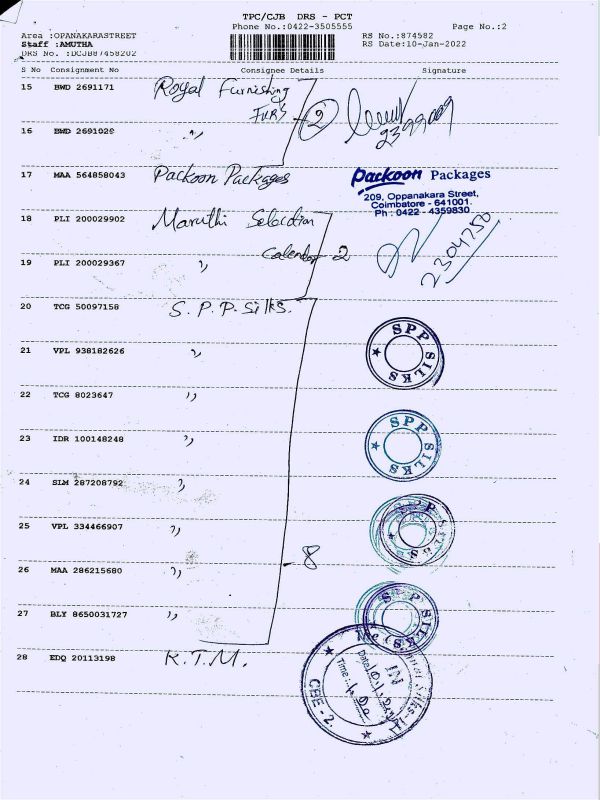 TPC/CJB DRS - PCT
Phone No.:0422-3505555 Page No.:2
Area :OPANAKARASTREET RS No.:874582
Staff :AMUTHA RS Date:10-Jan-2022
DRS No. :DCJB87458202
S No Consignment No Consignee Details Signature
15 BWD 2691171 Royal Furnishing
FURS 2 2399009
16 BWD 2691026 "
17 MAA 564858043 Packoon Packages Packoon Packages
209, Oppanakara Street,
Coimbatore - 641001.
Ph : 0422 - 4359830
18 PLI 200029902 Maruthi Selection
Calendar 2 2304750
19 PLI 200029367 "
20 TCG 50097158 S.P.P. Silks.
SPP SILKS
21 VPL 938182626 "
22 TCG 8023647 "
SPP SILKS
23 IDR 100148248 "
24 SLM 287208792 "
SPP SILKS
25 VPL 334466907 "
8
26 MAA 286215680 "
SPP SILKS
27 BLY 8650031727 "
28 EDQ 20113198 K.T.M.
IN
Date:
Time:
CBE - 2.